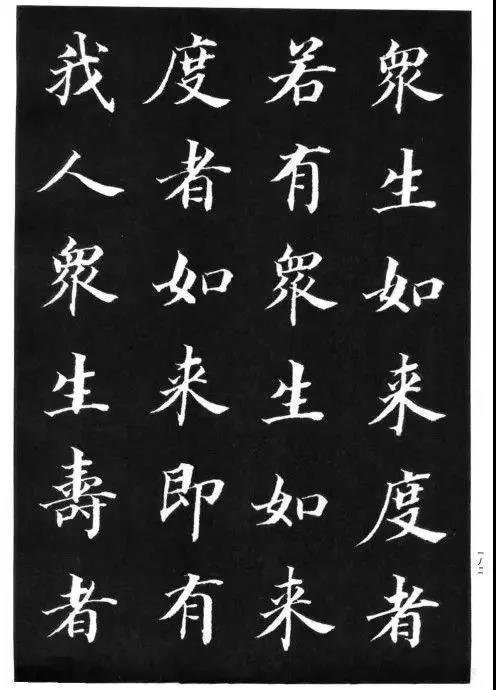 眾生如来度者
若有眾生如来
度者如来即有
我人眾生壽者
一八二